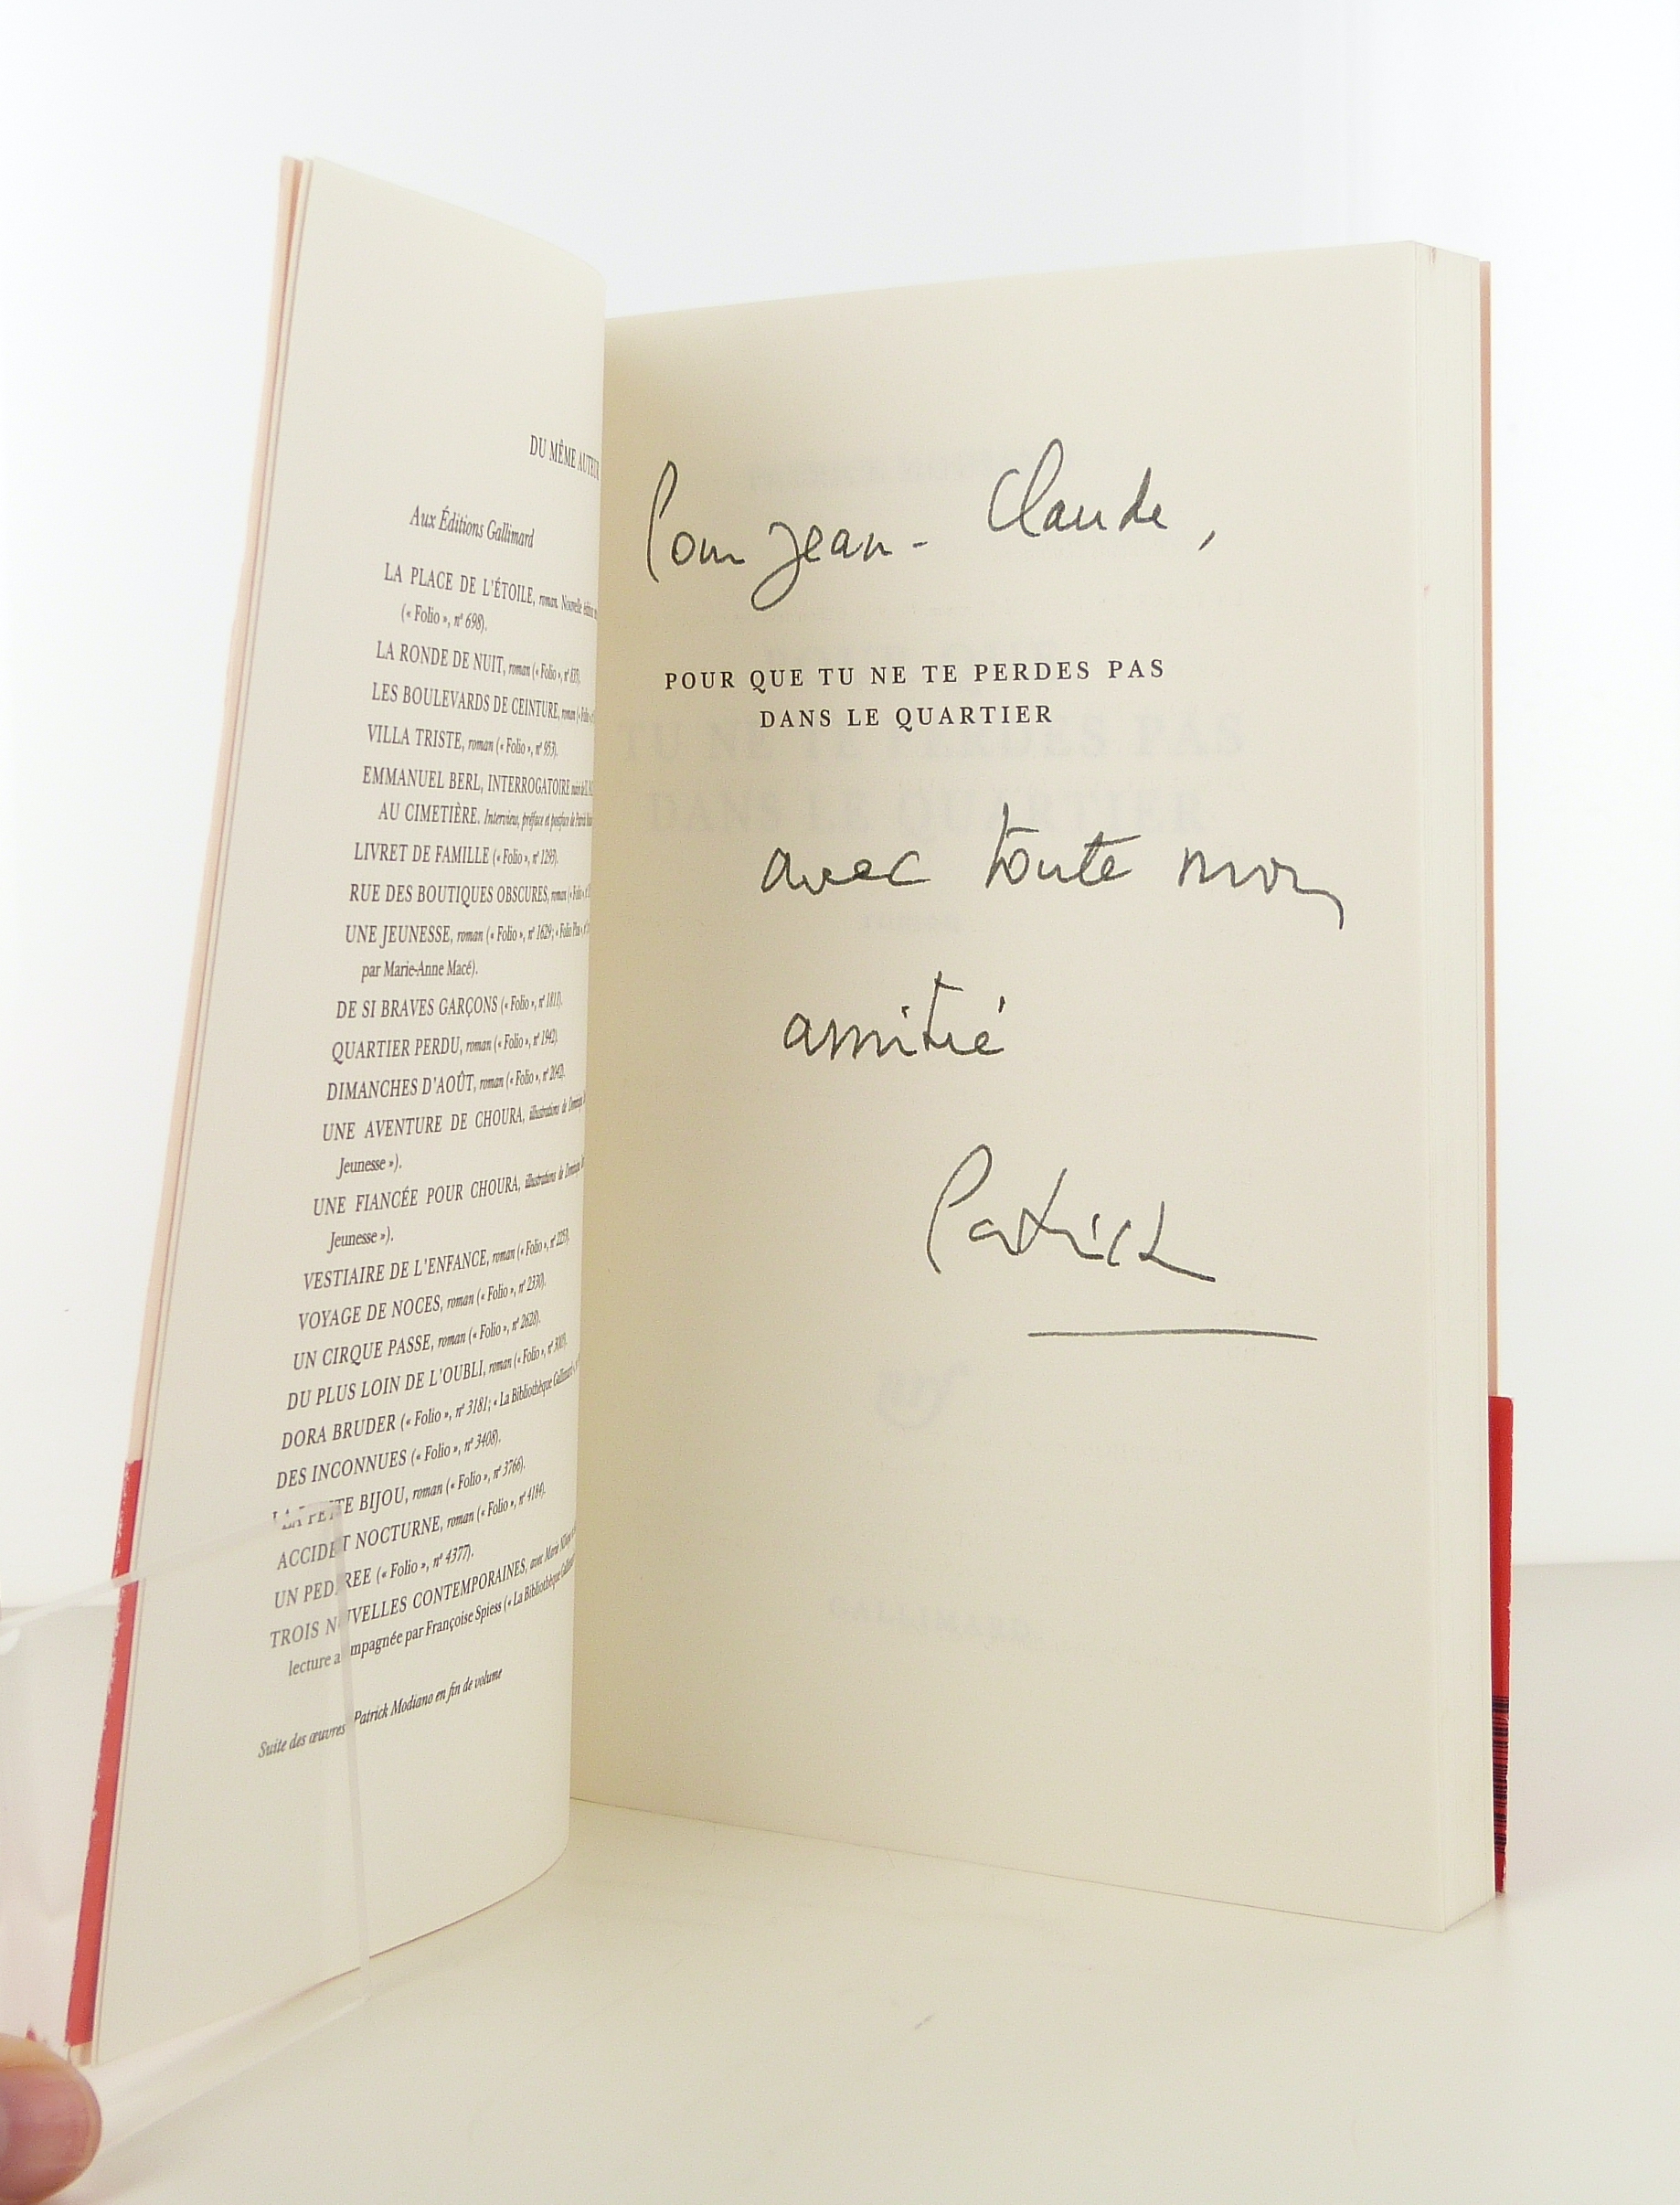 DU MÊME AUTEUR
Aux Éditions Gallimard
LA PLACE DE L'ÉTOILE, roman. Nouvelle
(« Folio », nº 698).
LA RONDE DE NUIT, roman (« Folio », nº 835).
LES BOULEVARDS DE CEINTURE, roman (« Folio »
VILLA TRISTE, roman (« Folio », nº 953).
EMMANUEL BERL, INTERROGATOIRE
AU CIMETIÈRE. Interview, préface et postface de Patrick
LIVRET DE FAMILLE (« Folio », nº 1293).
RUE DES BOUTIQUES OBSCURES, roman (« Folio »
UNE JEUNESSE, roman (« Folio », nº 1629; « Folio Plus »
par Marie-Anne Macé).
DE SI BRAVES GARÇONS (« Folio », nº 1811).
QUARTIER PERDU, roman (« Folio », nº 1942).
DIMANCHES D'AOÛT, roman (« Folio », nº 2042).
UNE AVENTURE DE CHOURA, illustrations de
Jeunesse »).
UNE FIANCÉE POUR CHOURA, illustrations de
Jeunesse »).
VESTIAIRE DE L'ENFANCE, roman (« Folio », nº 2253).
VOYAGE DE NOCES, roman (« Folio », nº 2330).
UN CIRQUE PASSE, roman (« Folio », nº 2628).
DU PLUS LOIN DE L'OUBLI, roman (« Folio », nº 3005).
DORA BRUDER (« Folio », nº 3181; « La Bibliothèque Gallimard »
DES INCONNUES (« Folio », nº 3408).
LA PETITE BIJOU, roman (« Folio », nº 3766).
ACCIDENT NOCTURNE, roman (« Folio », nº 4184).
UN PEDIGREE (« Folio », nº 4377).
TROIS NOUVELLES CONTEMPORAINES, avec Marie
lecture accompagnée par Françoise Spiess (« La Bibliothèque
Suite des œuvres Patrick Modiano en fin de volume
Pour Jean-Claude,
POUR QUE TU NE TE PERDES PAS
DANS LE QUARTIER
avec toute mon
amitié
Patrick